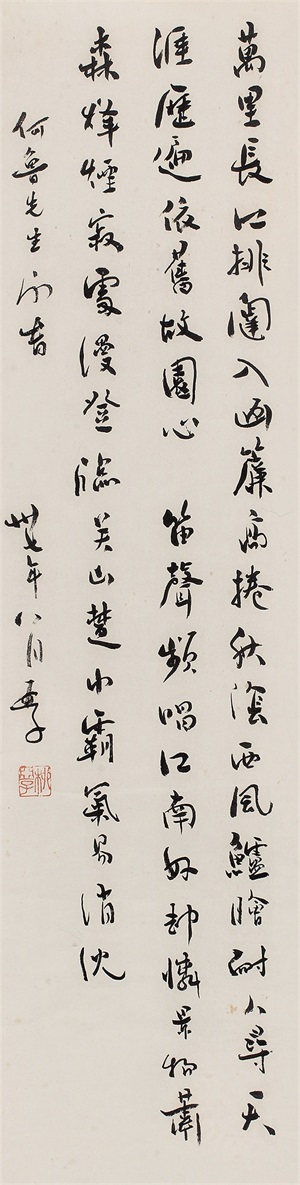 萬里長江排闥入畫簾高捲秋陰西風鱸膾耐人尋天
涯歷遍依舊故園心 笛聲頻唱江南好却憐景物蕭
森烽煙寂處漫登臨吳山楚水霸氣易消沈
何魯先生
卅七年八月